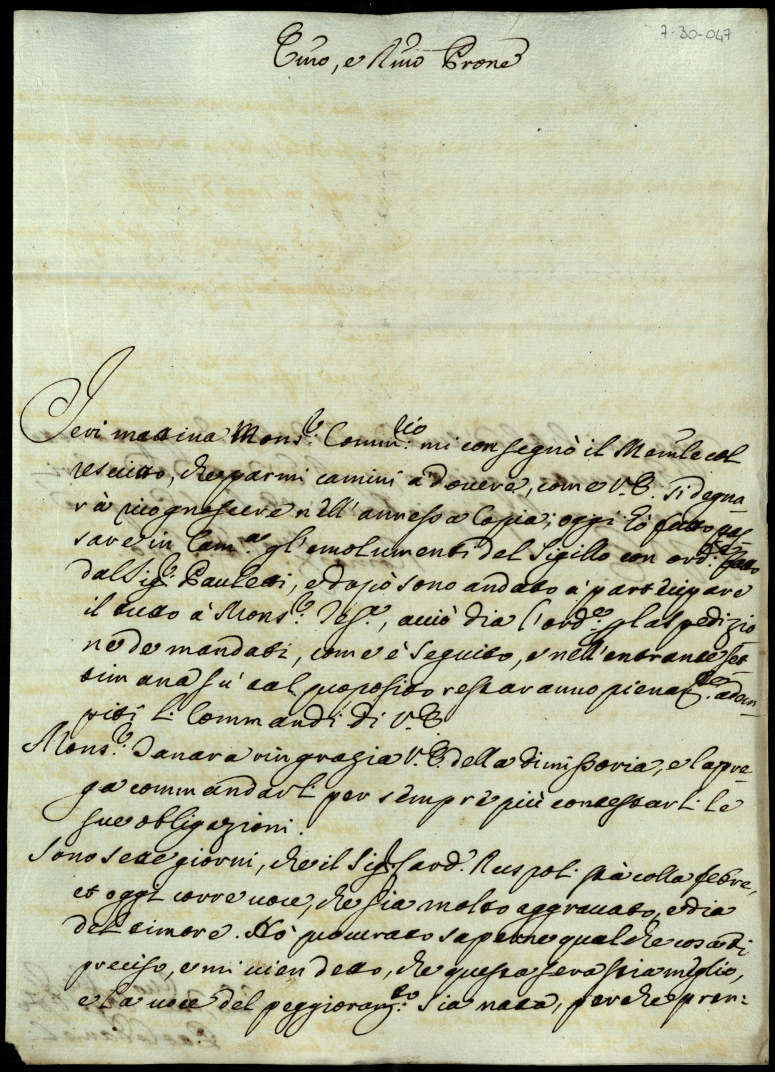 7-30-047
Emo, e Rmo Prone
Ieri mattina Mons.re Comm.rio mi consegnò il Mem.le col
rescitto, che parmi camini à dovere, come V.E. si degna-
rà ricognoscere nell'annessa Copia; oggi hò fatto pas-
sare in Cam.a gl'emolumenti del Sigillo con ord.e fatto
dal Sig.r Pauletti, e dopò sono andato à participare
il tutto à Mons.re Tes.re, acciò dia l'ord.e p la spedizio
ne de mandati, come è seguito, e nell'entrante set-
timana sù tal proposito restaranno pienam.te adem-
piti li Commandi di V.E.
Mons.re Tanara ringrazia V.E. della dimissoria, e la pre-
ga commandarli per sempre più contestarli le
sue obligazioni.
Sono sette giorni, che il Sig.r Card. Ruspoli stà colla febre,
et oggi corre voce, che sia molto aggravato, e dia
del timore. Hò procurato saperne qualche cosa di
preciso, e mi vien detto, che questa sera stia meglio,
e la voce del peggioram.to sia nata, perche pren-